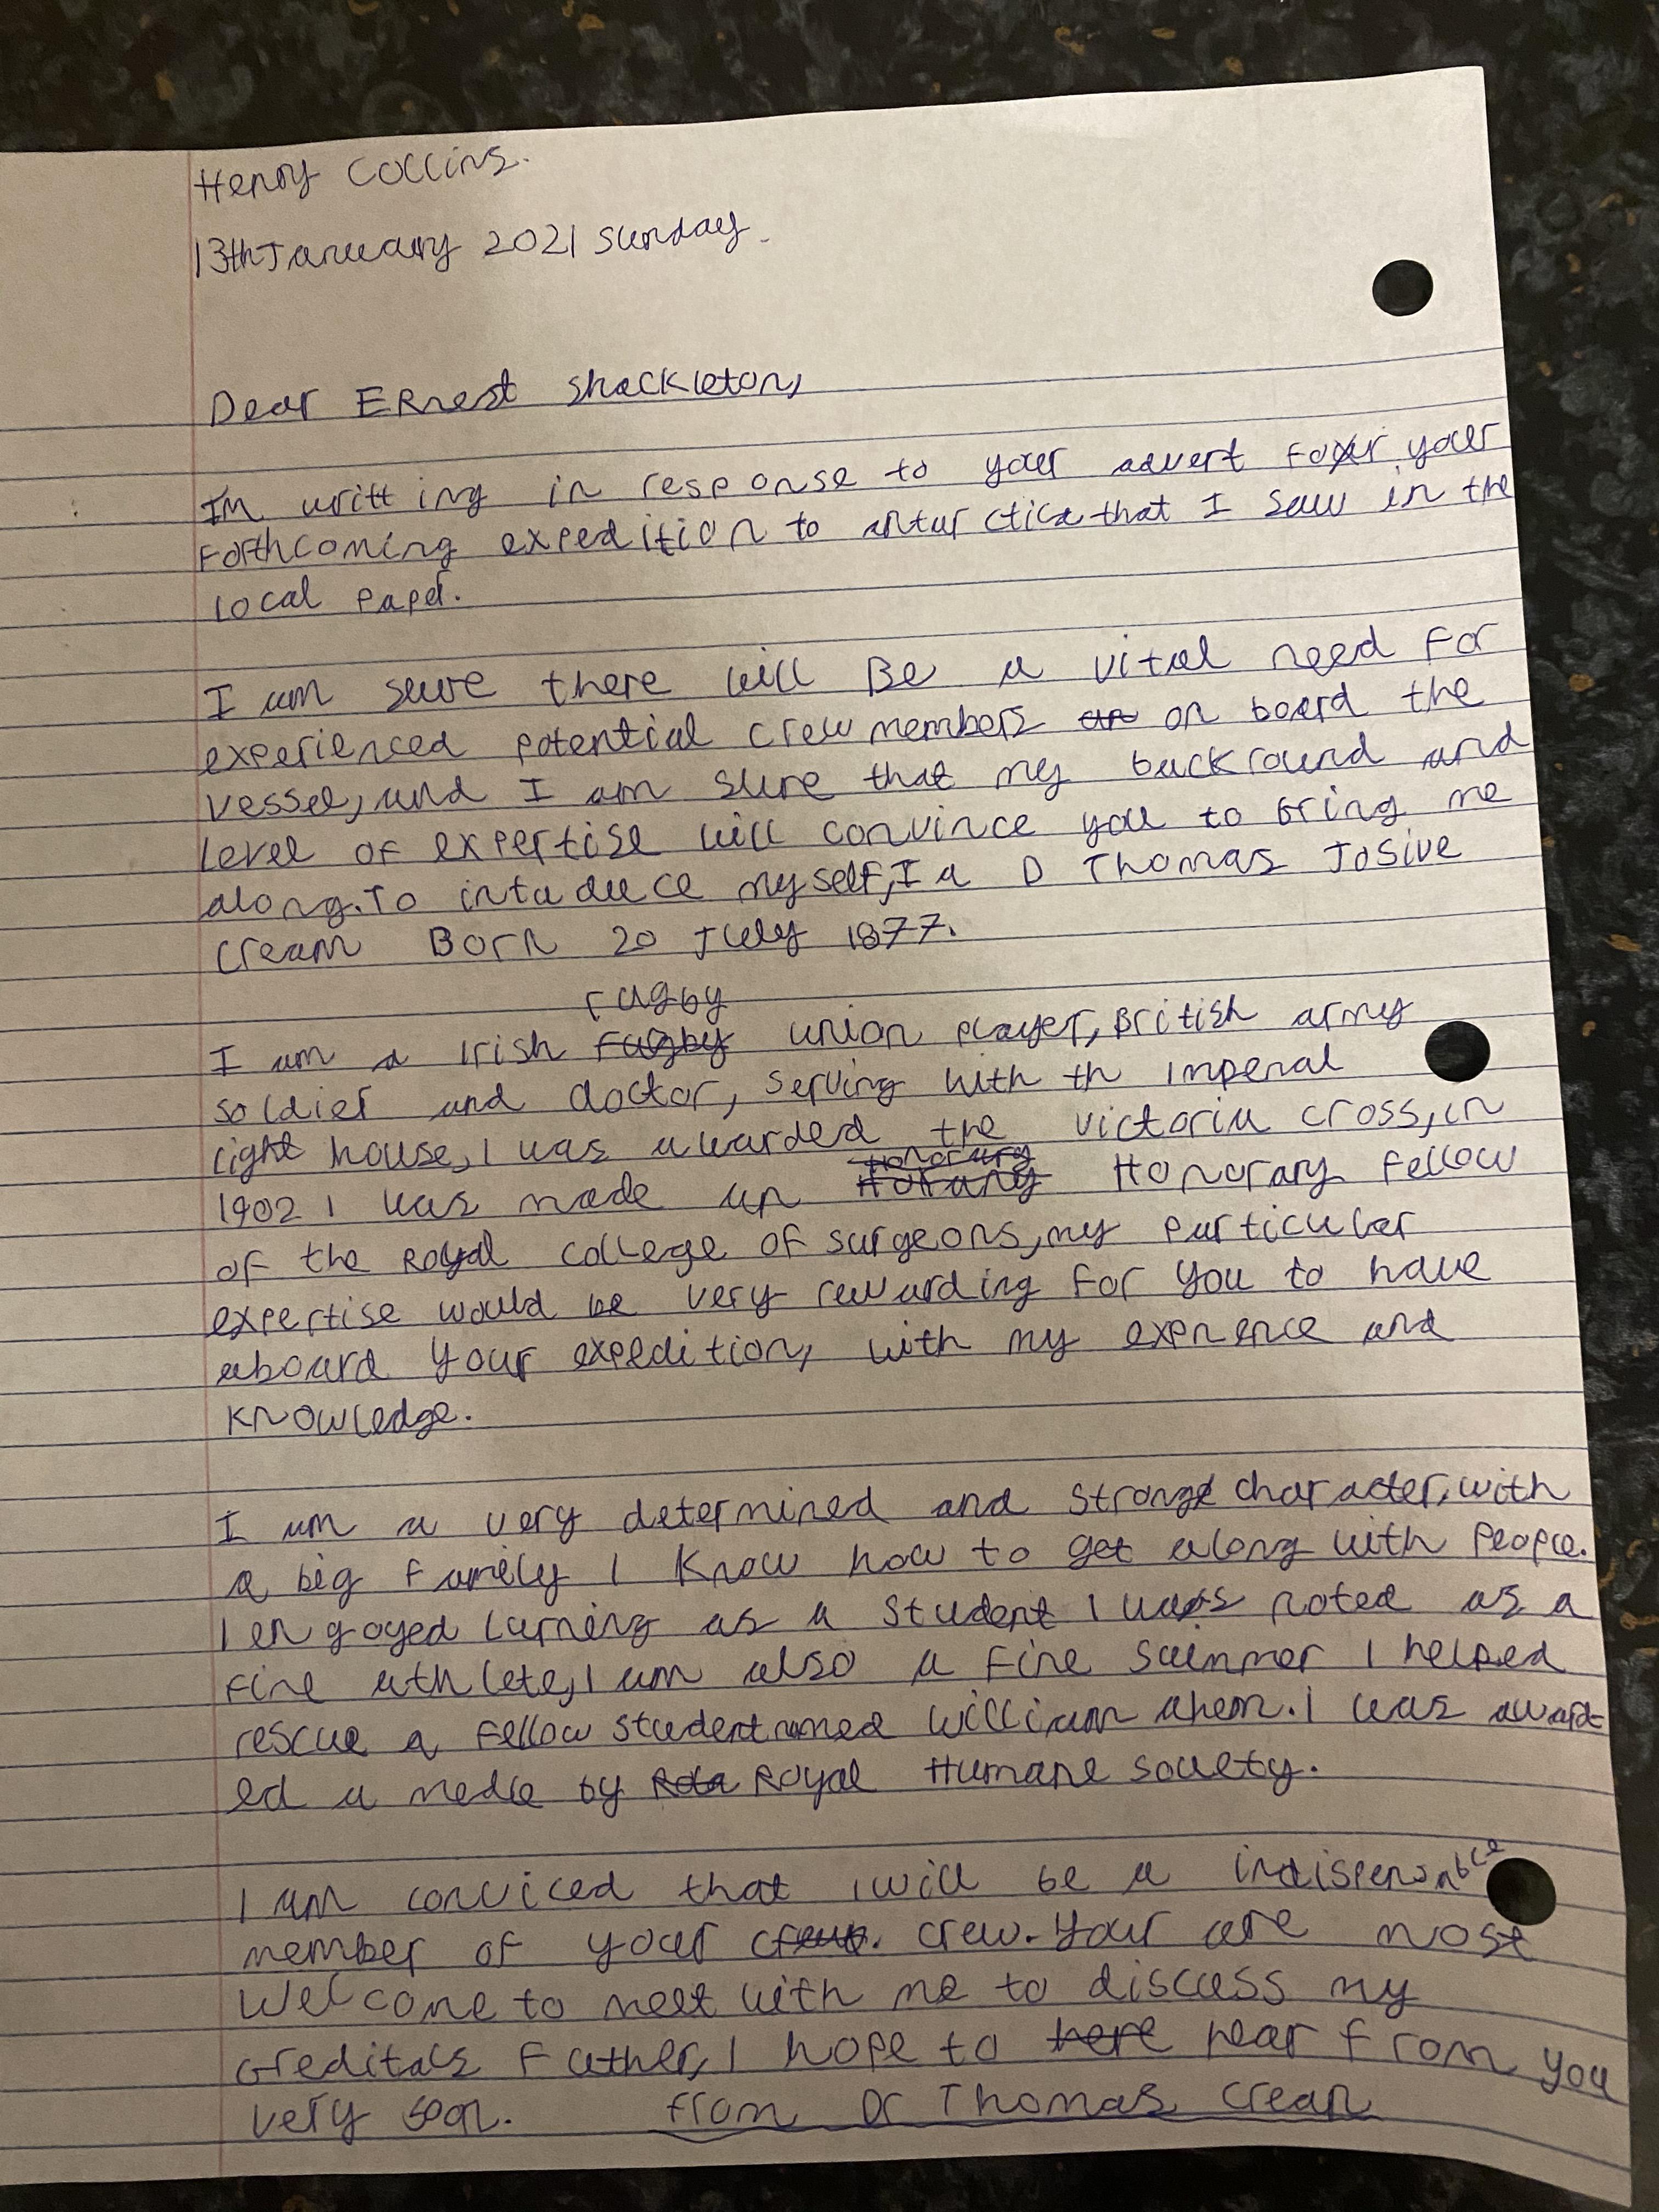 Henry Collins.
13th January 2021 Sunday.
Dear Ernest Shackleton,
Im writting in response to your advert for your
forthcoming expedition to anturctica that I saw in the
local paper.
I am sure there will Be a vital need for
experienced potential crew members on board the
vessel, and I am sure that my backround and
level of expertise will convince you to bring me
along. To intuduce myself, I a D Thomas Josive
Cream Born 20 July 1877.
rugby
I am a Irish union player, British army
soldier and doctor, serving with th imperial
light house, I was awarded the victoria cross, in
1902 I was made an Honorary Fellow
of the Royal College of surgeons, my particular
expertise would be very rewarding for you to have
aboard your expedition, with my exprience and
knowledge.
I am a very determined and strong character, with
a big family I know how to get along with people.
I engoyed larning as a student I was noted as a
fine athlete, I am also a fine swimmer I helped
rescue a fellow student named William ahern. I was award
ed a medle by Royal Humane society.
I am conviced that I will be a indispensable
member of your crew. Your are most
welcome to meet with me to discuss my
creditals Father, I hope to hear from you
very soon. from Dr Thomas Crean